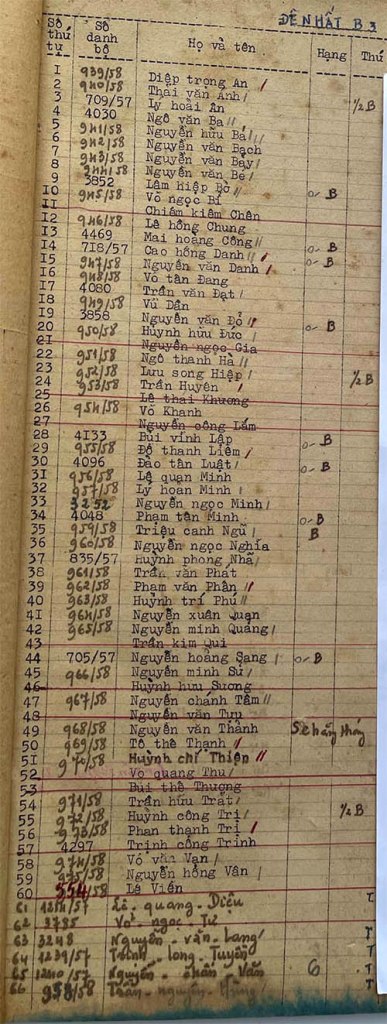 ĐỆ NHẤT B 3
Số thứ tự Số danh bộ Họ và tên Hạng Thứ
1 939/58 Diệp trọng An /
2 940/58 Thái văn Anh /
3 709/57 Lý hoài Ân ½ B
4 4030 Ngô văn Ba //
5 941/58 Nguyễn hữu Bá ///
6 942/58 Nguyễn văn Bạch
7 943/58 Nguyễn văn Bảy /
8 944/58 Nguyễn văn Bé /
9 3852 Lâm hiệp Bồ // o- B
10 945/58 Võ ngọc Bỉ
11 Chiêm kiêm Chên
12 946/58 Lê hồng Chung
13 4469 Mai hoàng Công //
14 718/57 Cao hồng Danh // o- B
15 947/58 Nguyễn văn Danh / o- B
16 948/58 Võ tấn Đang
17 4080 Trần văn Đạt /
18 949/58 Vĩ Dần
19 3858 Nguyễn văn Đỏ //
20 950/58 Huỳnh hữu Đức / o- B
21 Nguyễn ngọc Gia
22 951/58 Ngô thanh Hà //
23 952/58 Lưu song Hiệp /
24 953/58 Trần Huyên / ½ B
25 Lê thái Khương
26 954/58 Võ Khanh
27 Nguyễn công Lắm
28 4133 Bùi vĩnh Lập
29 955/58 Đỗ thanh Liêm / o- B
30 4096 Đào tân Luật / o- B
31 956/58 Lê quan Minh
32 957/58 Lý hoàn Minh
33 3252 Nguyễn ngọc Minh /
34 4048 Phạm tấn Minh o- B
35 959/58 Triệu canh Ngũ / B
36 960/58 Nguyễn ngọc Nghĩa
37 835/57 Huỳnh phong Nhã /
38 961/58 Trần văn Phát
39 962/58 Phạm văn Phân //
40 963/58 Huỳnh trí Phú //
41 964/58 Nguyễn xuân Quan
42 965/58 Nguyễn minh Quang /
43 Trần kim Qui
44 705/57 Nguyễn hoàng Sang / o- B
45 966/58 Nguyễn minh Sử /
46 Huỳnh hữu Sương
47 967/58 Nguyễn chánh Tâm //
48 Nguyễn văn Tựu
49 968/58 Nguyễn văn Thành
50 969/58 Tô thế Thạnh //
51 970/58 Huỳnh chí Thiệp //
52 Võ quang Thu /
53 Bùi thế Thượng
54 971/58 Trần hữu Trát / ½ B
55 972/58 Huỳnh công Trị /
56 973/58 Phan thanh Trị /
57 4297 Trịnh công Trinh
58 974/58 Võ văn Vạn /
59 975/58 Nguyễn hồng Vân /
60 554/58 Lê Viễn
61 /57 Lê - quang - Diệu T
62 3785 Võ - ngọc - Tư T
63 3248 Nguyễn - văn - Lang / T
64 1239/57 Trịnh - long - Tuyền T
65 1240/57 Nguyễn - chấn - Văn 6 T
66 958/58 Trần - nguyên - Hùng / T